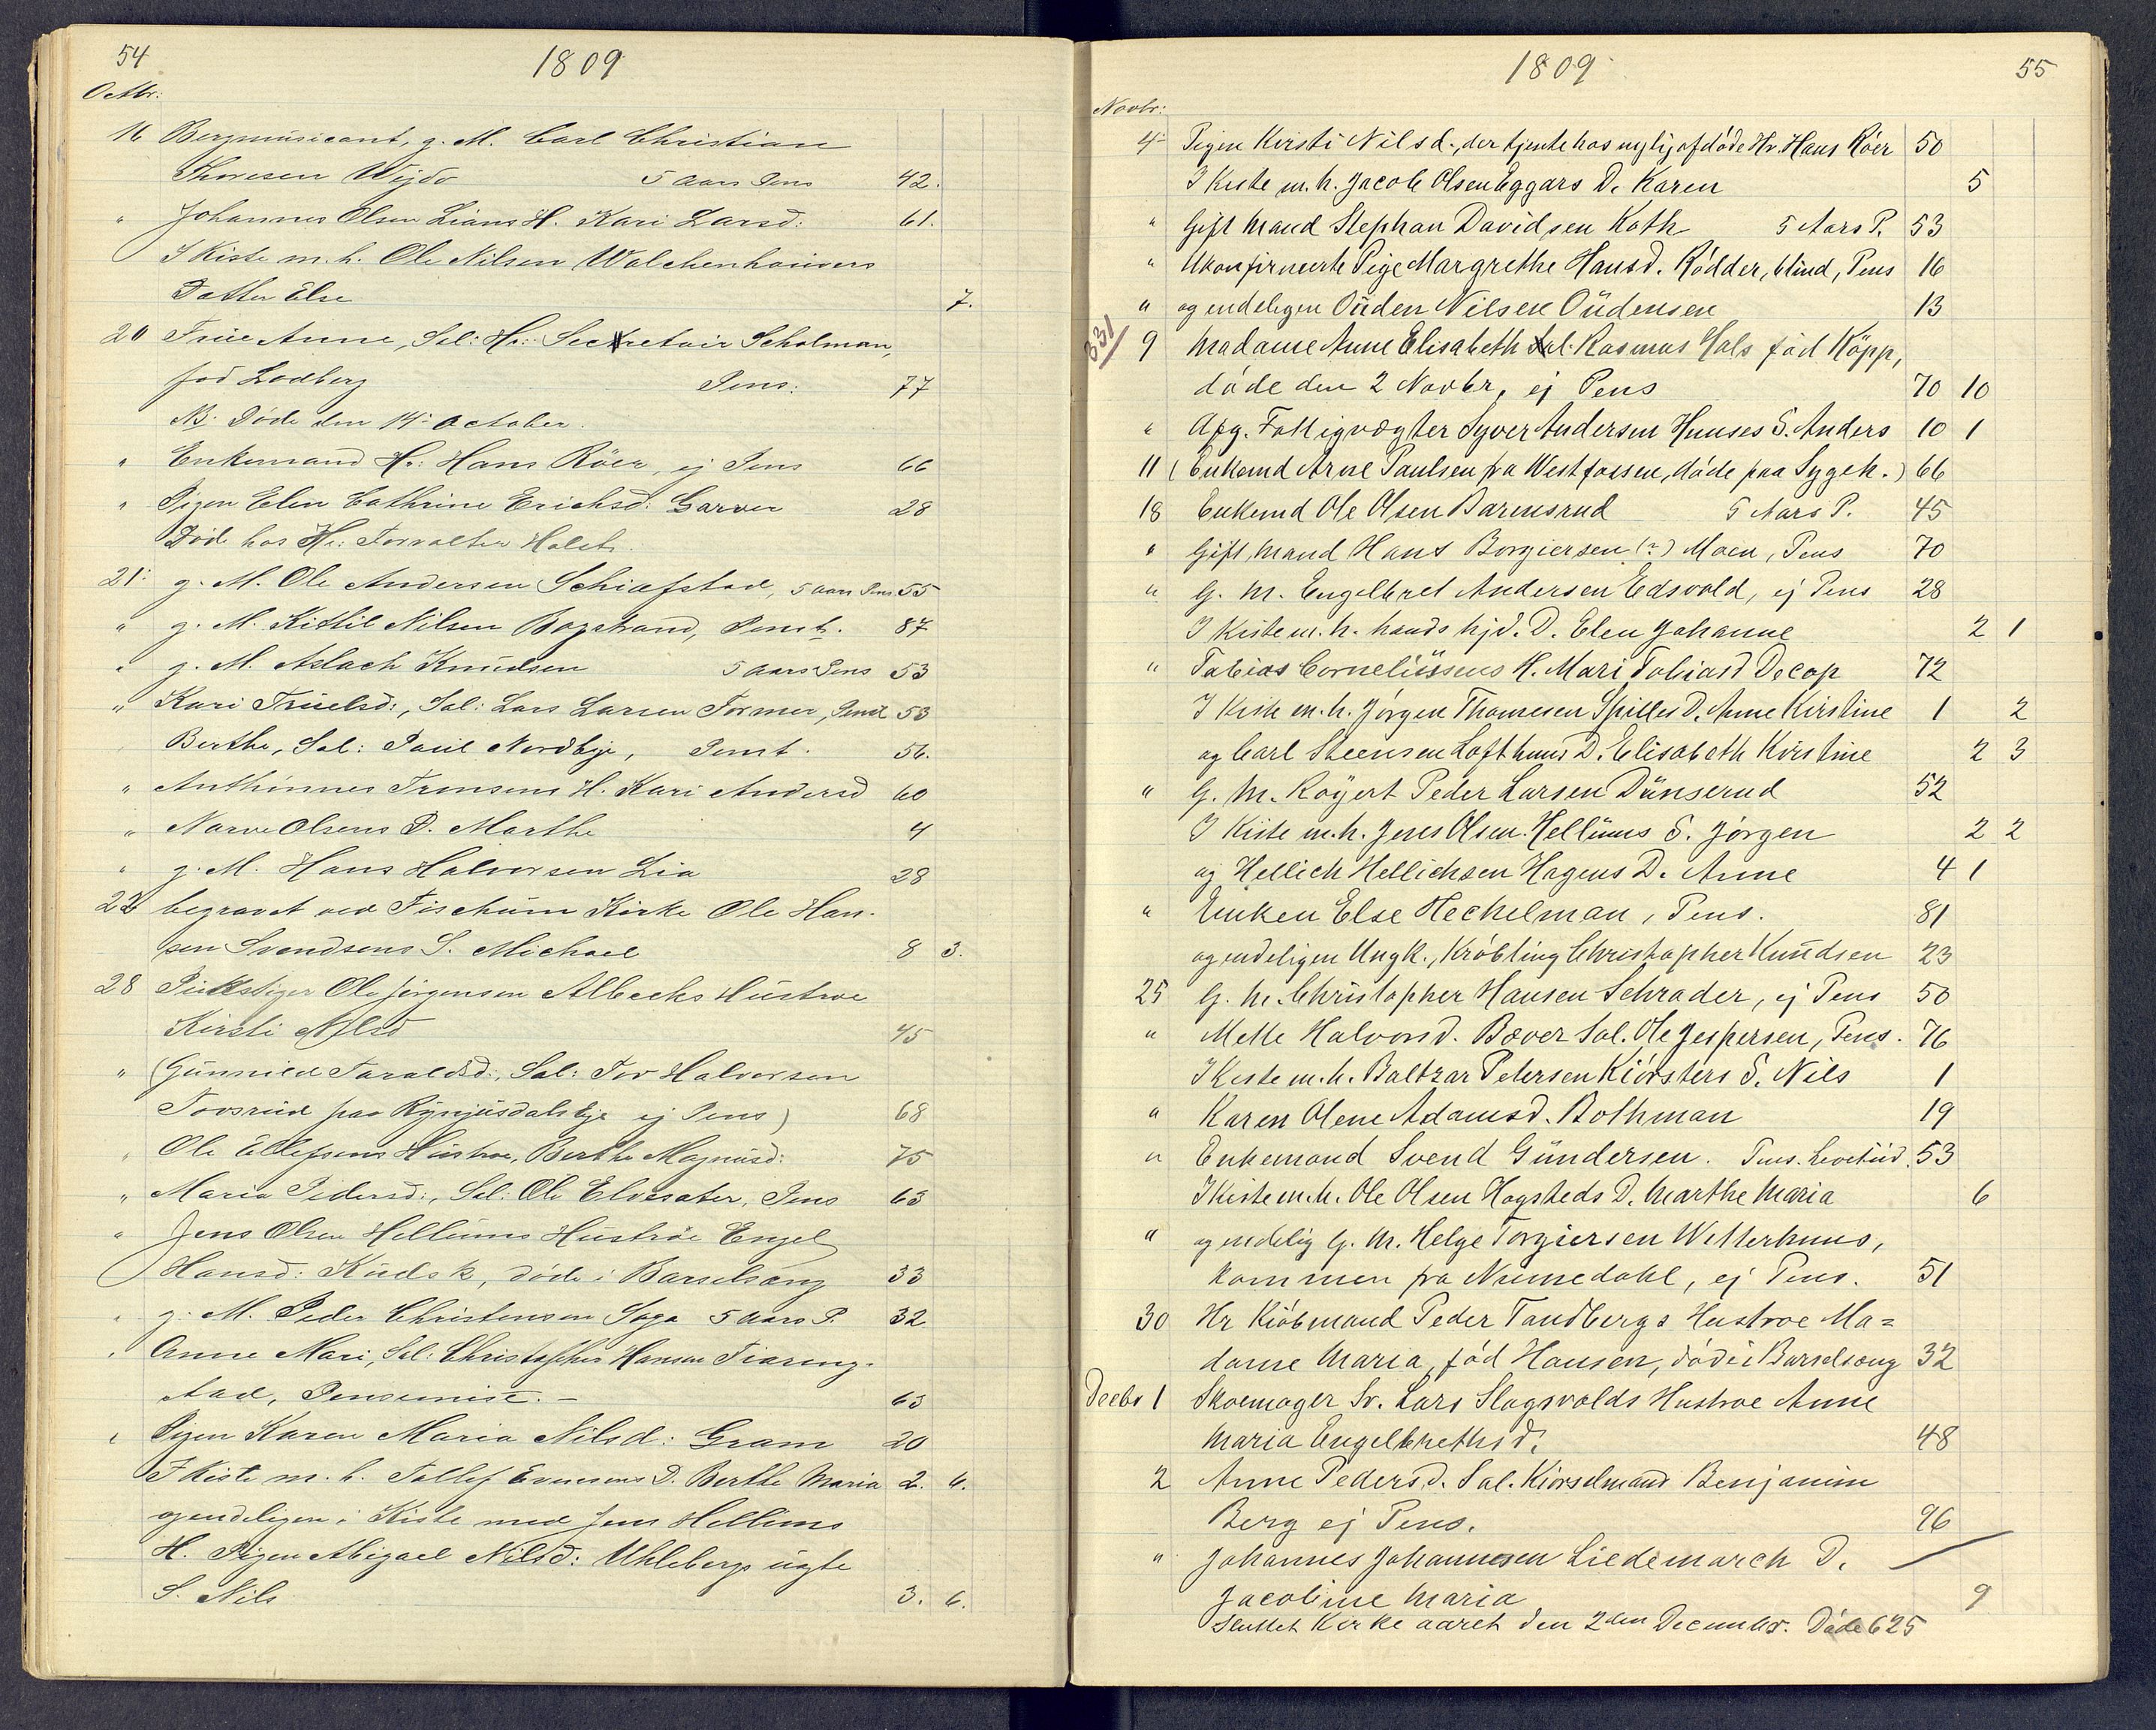 54
1809
Octbr:
16 Bergmusicant, g. M. Carl Christian
Thoresen Weydo 5 Aars Pens 42.
" Johannes Olsen Lians H. Kari Larsd: 61.
I Kiste m. h. Ole Nilsen Walchenhouivers
Datter Else 7.
20 Frue Anne, Sal: Hr: Secretair Scholman,
fød Lodberg Pens: 77
NB. Døde den 14: October.
" Enkemand Hr: Hans Röer, ej Pens 66
" Pigen Elen Cathrine Erichsd: Garver 28
Død hos Hr: Forvalter Holst.
21: g. M. Ole Andersen Schiafstad, 5 aars Pens. 55
" g. M. Kittil Nilsen Bogstrand, Penst. 87
" g. M. Aslach Knudsen 5 Aars Pens 53
" Kari Truelsd:, Sal: Lars Larsen Former, Penst 53
Berthe, Sal: Paul Nordbye, Penst. 56.
" Anthinnes Trensens H. Kari Andersd 60
" Narve Olsens D. Marthe 4
" g. M. Hans Halvorsen Lia 28
22 begravet ved Fischum Kirke Ole Han-
sen Svendsens S. Michael 8 3.
28 Pukstiger Ole Jørgensen Albecks Hustroe
Kirsti Nilsd 45
" (Gunnild Taraldsd:, Sal: Tor Halvorsen
Tovsrud paa Rynjusdals Eje ej Pens) 68
" Ole Ellefsens Hustroe, Berthe Magnusd: 75
" Maria Pedersd:, Sal: Ole Elvesater, Pens 63
" Jens Olsen Hellums Hustroe Engel
Hansd: Kudsk, døde i Barselseng 33
" g. M. Peder Christensen Saga 5 Aars P. 32
" Anne Mari, Sal: Christopher Hansen Fiareng-
stad, Pensionist. - 63
" Pigen Karen Maria Nilsd: Gram 20
I Kiste m. h. Tollef Evensens D. Berthe Maria 2. 6.
og endeligen i Kiste med Jens Hellums
H. Pigen Abigael Nilsd: Uhlebergs uægte
S. Nils 3. 6.
1809
55
Novbr:
4 Pigen Kirsti Nilsd., der tjente hos nylig afdøde Hr. Hans Röer 50
I Kiste m. h. Jacob Olsen Eggars D. Karen 5
" Gift Mand Stephan Davidsen Koth 5 Aars P. 53
" Ukonfirmerte Pige Margrethe Hansd. Rödder, blind, Pens 16
" og endeligen Ouden Nilsen Oudensen 13
331
9 Madame Anne Elisabeth Sal. Rasmus Hals fød Köpp,
døde den 2 Novbr, ej Pens 70 10
" Afg. Fattigvogter Syver Andersen Huuses S. Anders 10 1
11 (Enkemd Arne Paulsen fra Westfossen, døde paa Sygeh.) 66
18 Enkemd Ole Olsen Barensrud 5 Aars P. 45
" Gift Mand Hans Borgiersen (?) Moen, Pens 70
" G. M. Engelbret Andersen Edsvold, ej Pens 28
I Kiste m. h. hands hjd. D. Elen Johanne 2 1
" Tobias Corneliüssens H. Mari Tobiasd Decop 72
I Kiste m. h. Jørgen Thomesen Spilles D. Anne Kirstine 1 2
og Carl Steensen Lofthuus D. Elisabeth Kirstine 2 3
" G. M. Røyert Peder Larsen Dünserud 52
I Kiste m. h. Jens Olsen Hellüms S. Jörgen 2 2
og Hellich Hellichsen Hagens D. Anne 4 1
" Enken Else Heckelman, Pens. 81
og endeligen Ungk., Krøbling Christopher Knudsen 23
25 G. M. Christopher Hansen Schrader, ej Pens 50
" Mette Halvorsd. Bæver Sal. Ole Jespersen, Pens. 76
I Kiste m. h. Baltzar Petersen Kiörsters S. Nils 1
" Karen Olene Adamsd. Bothman 19
" Enkemand Svend Gündersen. Pens. Levetiid. 53
I Kiste m. h. Ole Olsen Hogsteds D. Marthe Maria 6
" og endelig G. M. Helge Torgiersen Wetterhuus,
kommen fra Numedahl, ej Pens. 51
30 Hr Kiöbmand Peder Tandbergs Hustroe Ma=
dame Maria, fød Hansen, døde i Barselsæng 32
Decbr 1 Skoemager Sr. Lars Slagsvolds Hustroe Anne
Maria Engelbrethsd. 48
2 Anne Pedersd. Sal. Kiörselmand Benjamin
Berg ej Pens. 96
" Johannes Johannesen Liedemarch D.
Jacobine Maria 9
Sluttet Kirkeaaret den 2den December. Døde 625